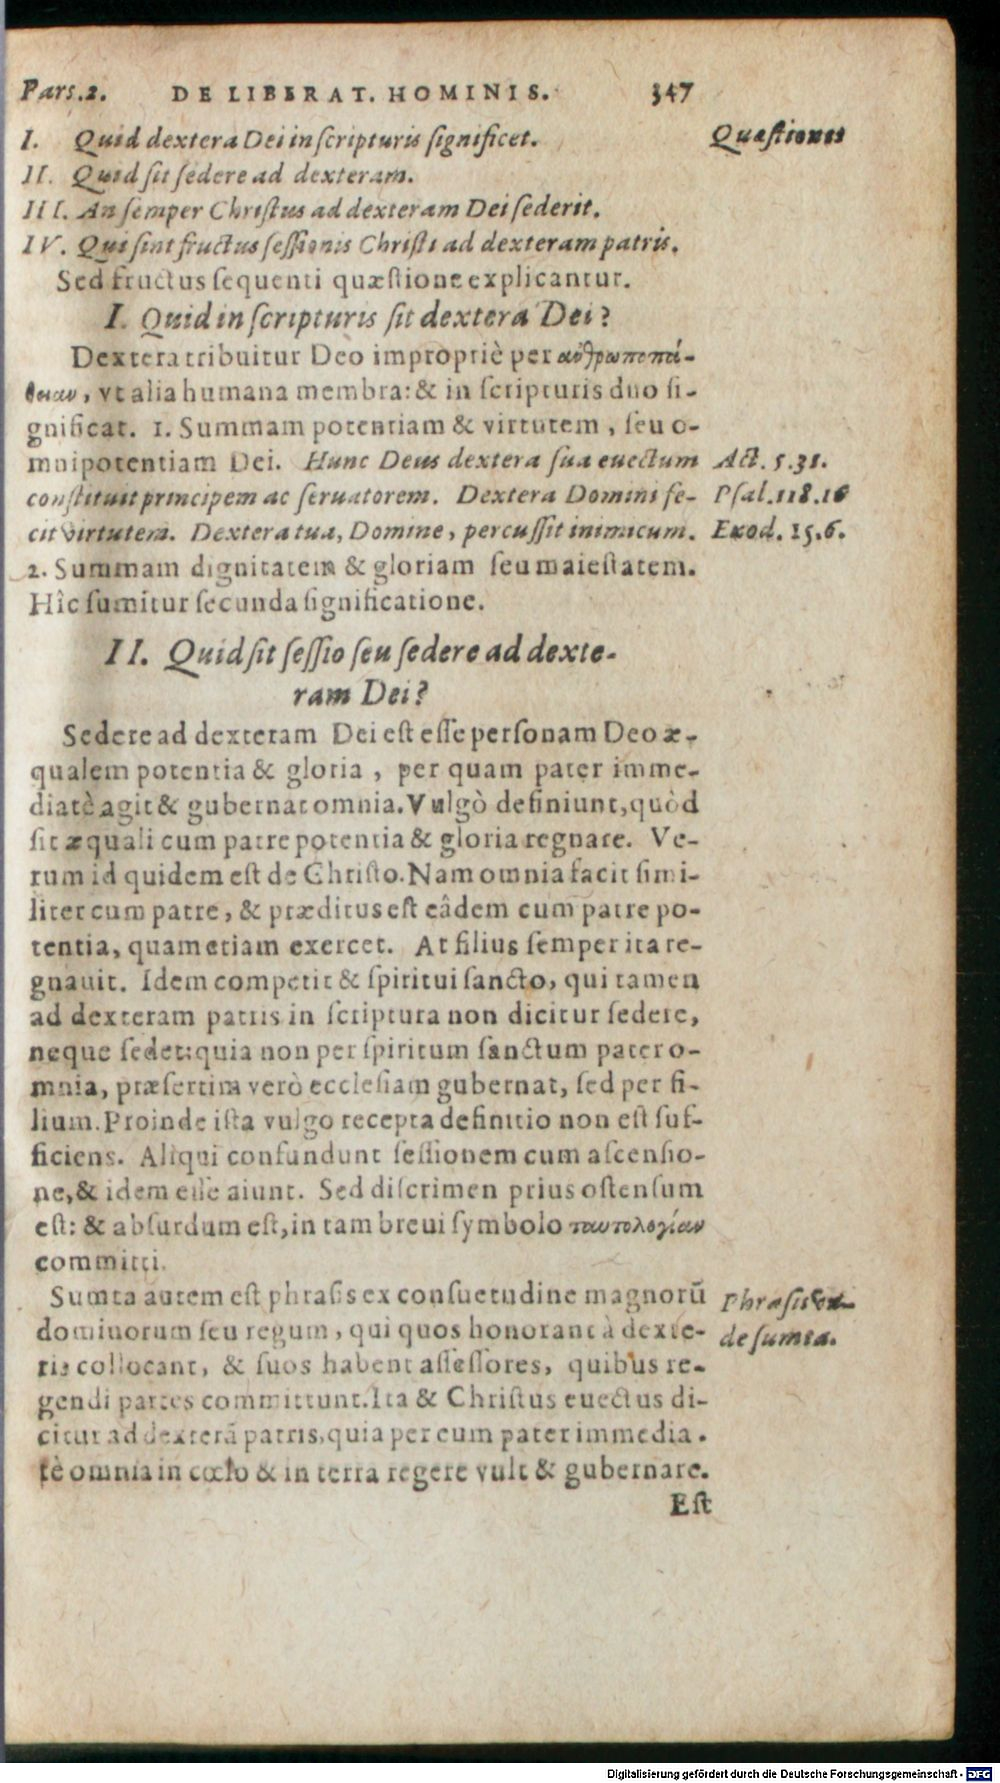 Pars.2. DE LIBERAT. HOMINIS. 347
I. Quid dextera Dei in ſcripturis ſignificet.
Quæſtiones
II. Quid ſit ſedere ad dexteram.
III. An ſemper Chriſtus ad dexteram Dei ſederit.
IV. Qui ſint fructus ſeſſionis Chriſti ad dexteram patris.
Sed fructus ſequenti quæſtione explicantur.
I. Quid in ſcripturis ſit dextera Dei?
Dextera tribuitur Deo impropriè per ανθρωποπά-
θειαν, vt alia humana membra: & in ſcripturis duo ſi-
gnificat. 1. Summam potentiam & virtutem, ſeu o-
mnipotentiam Dei. Hunc Deus dextera ſua euectum
Act. 5.31.
conſtituit principem ac ſeruatorem. Dextera Domini fe-
Pſal.118.16
cit virtutem. Dextera tua, Domine, percuſſit inimicum.
Exod. 15.6.
2. Summam dignitatem & gloriam ſeu maieſtatem.
Hîc ſumitur ſecunda ſignificatione.
II. Quid ſit ſeſſio ſeu ſedere ad dexte-
ram Dei?
Sedere ad dexteram Dei eſt eſſe perſonam Deo æ-
qualem potentia & gloria, per quam pater imme-
diatè agit & gubernat omnia. Vulgò definiunt, quòd
ſit æquali cum patre potentia & gloria regnare. Ve-
rum id quidem eſt de Chriſto. Nam omnia facit ſimi-
liter cum patre, & præditus eſt eâdem cum patre po-
tentia, quam etiam exercet. At filius ſemper ita re-
gnauit. Idem competit & ſpiritui ſancto, qui tamen
ad dexteram patris in ſcriptura non dicitur ſedere,
neque ſedet: quia non per ſpiritum ſanctum pater o-
mnia, præſertim verò eccleſiam gubernat, ſed per fi-
lium. Proinde iſta vulgo recepta definitio non eſt ſuf-
ficiens. Aliqui confundunt ſeſſionem cum aſcenſio-
ne, & idem eſſe aiunt. Sed diſcrimen prius oſtenſum
eſt: & abſurdum eſt, in tam breui ſymbolo ταυτολογίαν
committi.
Sumta autem eſt phraſis ex conſuetudine magnorū
Phraſis vn-
dominorum ſeu regum, qui quos honorant à dexte-
de ſumta.
ris collocant, & ſuos habent aſſeſſores, quibus re-
gendi partes committunt. Ita & Chriſtus euectus di-
citur ad dexterã patris, quia per eum pater immedia-
tè omnia in cœlo & in terra regere vult & gubernare.
Eſt
Digitalisierung gefördert durch die Deutsche Forschungsgemeinschaft - DFG